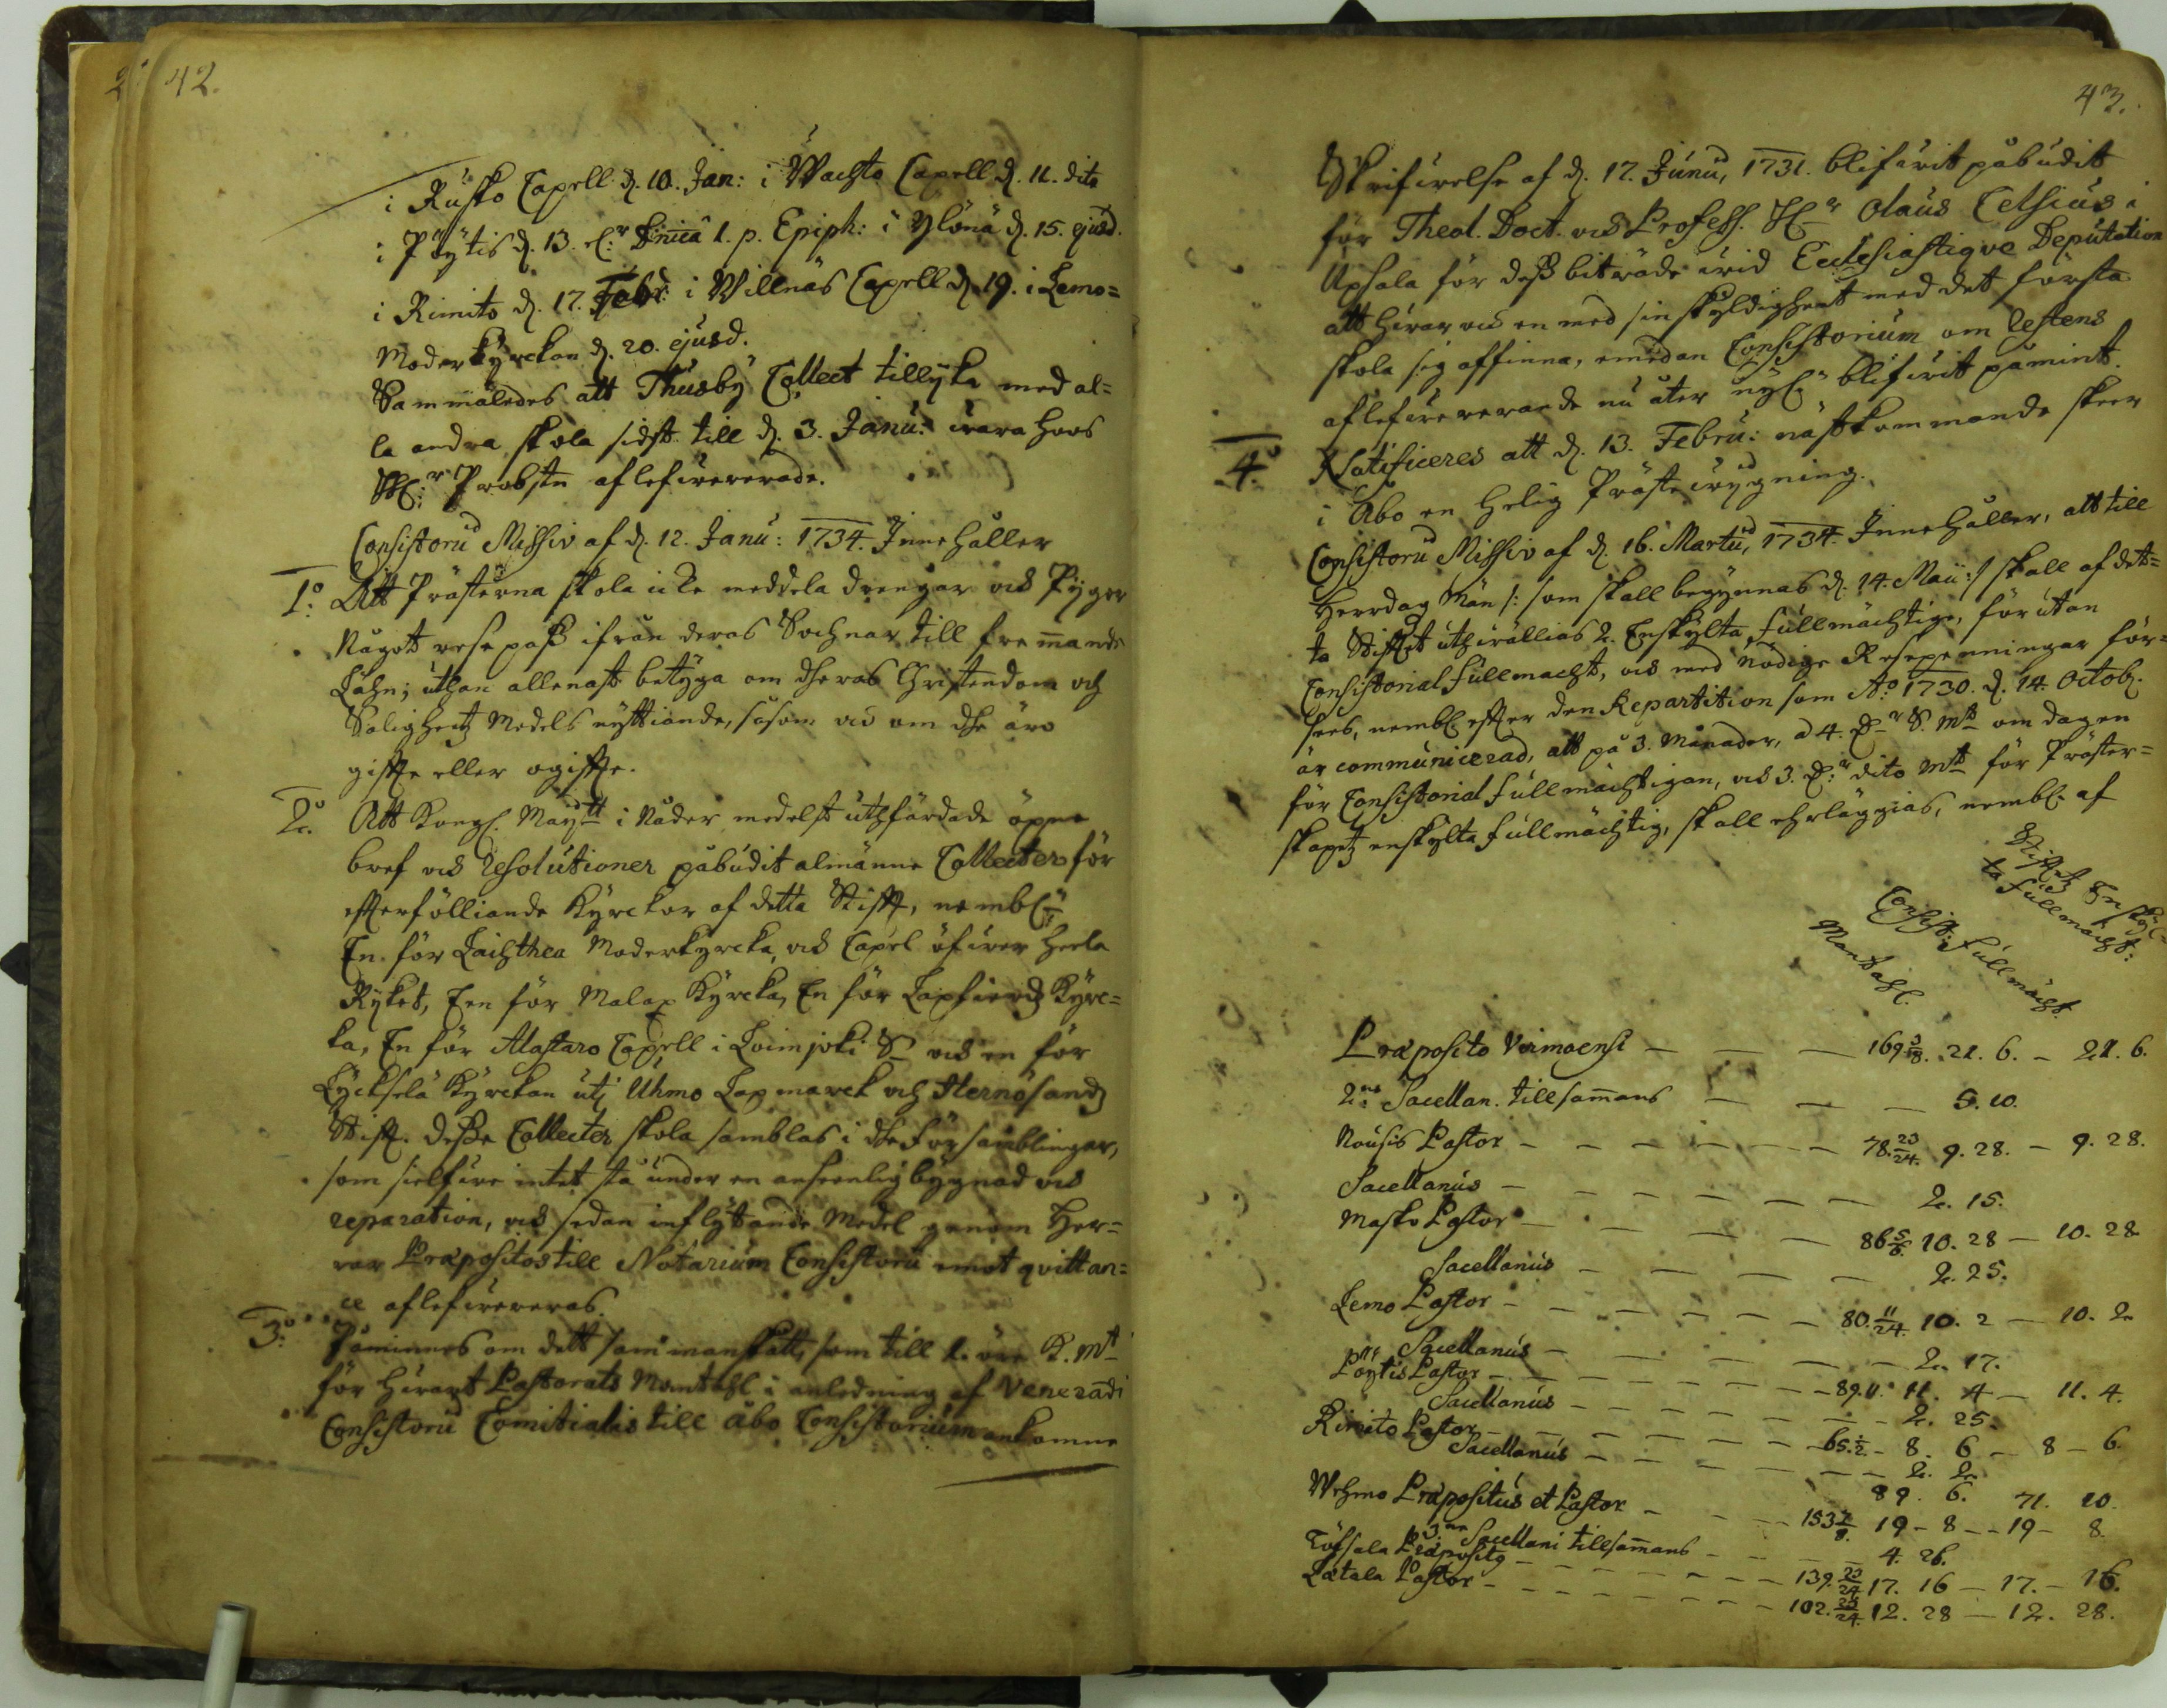 42.
i Rusko Capell d. 10. Jan: i Wachto Capell d. 11. dito
i Pöytis d. 13. Dnica 1. p. Epiph: i Ylönä d. 15. ejusd.
i Rimito d. 17. Febr: i Willnäs Capell d. 19. i Lemo=
Moderkyrckan d. 20. ejusd.
Sammaledes att Thusby Collect tillyka med al=
la andra skola sidst till d. 3. Janu: wara hoos
H:r Probsten aflefwererade.
Consistorii Missiv af d. 12. Janu: 1734. Innehåller
1:o Att Prästerna skola icke meddela drengar och Pygor
Någott resepass ifrån deras Sochnar till fremmande
Lähn; uthan allenast betyga om dheras Christendom och
Salighetz Medels nyttiande, såsom och om dhe äro
giffte eller ogiffte.
2:o Att Kongl. Maij:tt i Nåder medelst uthfärdade öpne
bref och resolutioner påbudit almänne Collecter för
effterfölliande Kyrckor af detta Stifft, nembl:n
En för Laihthea Moderkyrcka, och Capel öfwer heela
Ryket, Een för Malax Kyrcka, En för Lapfierdz Kyrc=
ka, En för Alastaro Capell i Loimjoki S:n och en för
Lyckselä Kyrckan uti Uhmo Lapmarck och Hernösandz
Stifft. Desse Collecter skola samblas i dhe Församblingar,
som sielfwe intet stå under en ansenlig bygnad och
reparation, och sedan inflytande Medel genom Her=
rar Præpositos till Notarium Consistorii emot qvittan=
ce aflefwereras.
3:o Påminnes om dett sammanskått, som till 2. öre K. m:t
för hwart Pastorats Mantahl i anledning af Venerandi
Consistorii Comitialis till Åbo Consistorium ankomne
43.
Skrifwelse af d. 17. Junii, 1731. blifwit påbudit
för Theol. Doct. och Profess. H:r Olaus Celsius i
Upsala för dess biträde wid Ecclesiastique Deputation
att hwar och en med sin skyldighet med det första
skola sig affinna, emedan Consistorium om restens
aflefwererande nu åter nyl: blifwit påmint.
4:o Notificeres att d. 13. Febru: nästkommande skeer
i Åbo en helig Prästewygning.
Consistorii Missiv af d. 16. Martii, 1734. Innehåller, att till
Herredag Män /: som skall begynnas d. 14. Maii :/ skall af det=
ta Stifftet uthwällias 2. Enskylta fullmächtige, förutan
Consistorial fullmacht, och med nödige Resepenningar för=
sees, nembl. effter den Repartition som A:o 1730. d. 14. Octob.
är communicerad, att på 3. Månader, à 4. D:r S. m:t om dagen
för Consistorial fullmächtigan, och 3. D:r dito m:t för Präster=
skapetz enskylta fullmächtig, skall ehrläggias, nembl. af
Mantahl.
Consist: fullmächt.
Stifftetz Enskyl=
ta fullmächt:
Præposito Virmoensi — — — 169 3/8. 21. 6. — 21. 6.
2:ne Sacellan. tillsammans — — — 5. 10.
Nousis Pastor — — — — — 78. 23/24. 9. 28. — 9. 28.
Sacellanus — — — — — 2. 15.
Masko Pastor — — — — 86 5/6. 10. 28 — 10. 28
Sacellanus — — — — 2. 25.
Lemo Pastor — — — — 80. 11/24. 10. 2 — 10. 2
Sacellanus — — — — 2. 17.
Pöytis Pastor — — — — 89. 11. 4 — 11. 4.
Sacellanus — — — — 2. 25.
Rimito Pastor — — — — 65. 1/2 — 8. 6 — 8 — 6.
Sacellanus — — — — 2. 2
89. 6. 71. 10.
Wehmo Præpositus et Pastor — — — 153 7/8. 19 — 8 — 19 — 8.
3:ne Sacellani tillsammans — — — 4. 26.
Töfsala Præposito — — — 139. 23/24 17. 16 — 17. — 16.
Letala Pastor — — — 102. 23/24. 12. 28 — 12. 28.